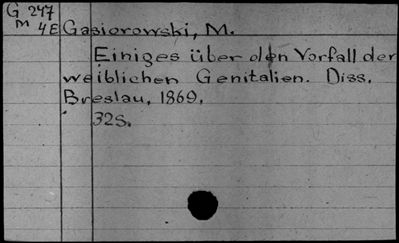 G 247
M 4E Gasiorowski, M.
Einiges über den Vorfall der
weiblichen Genitalien. Diss.
Breslau, 1869.
32S.